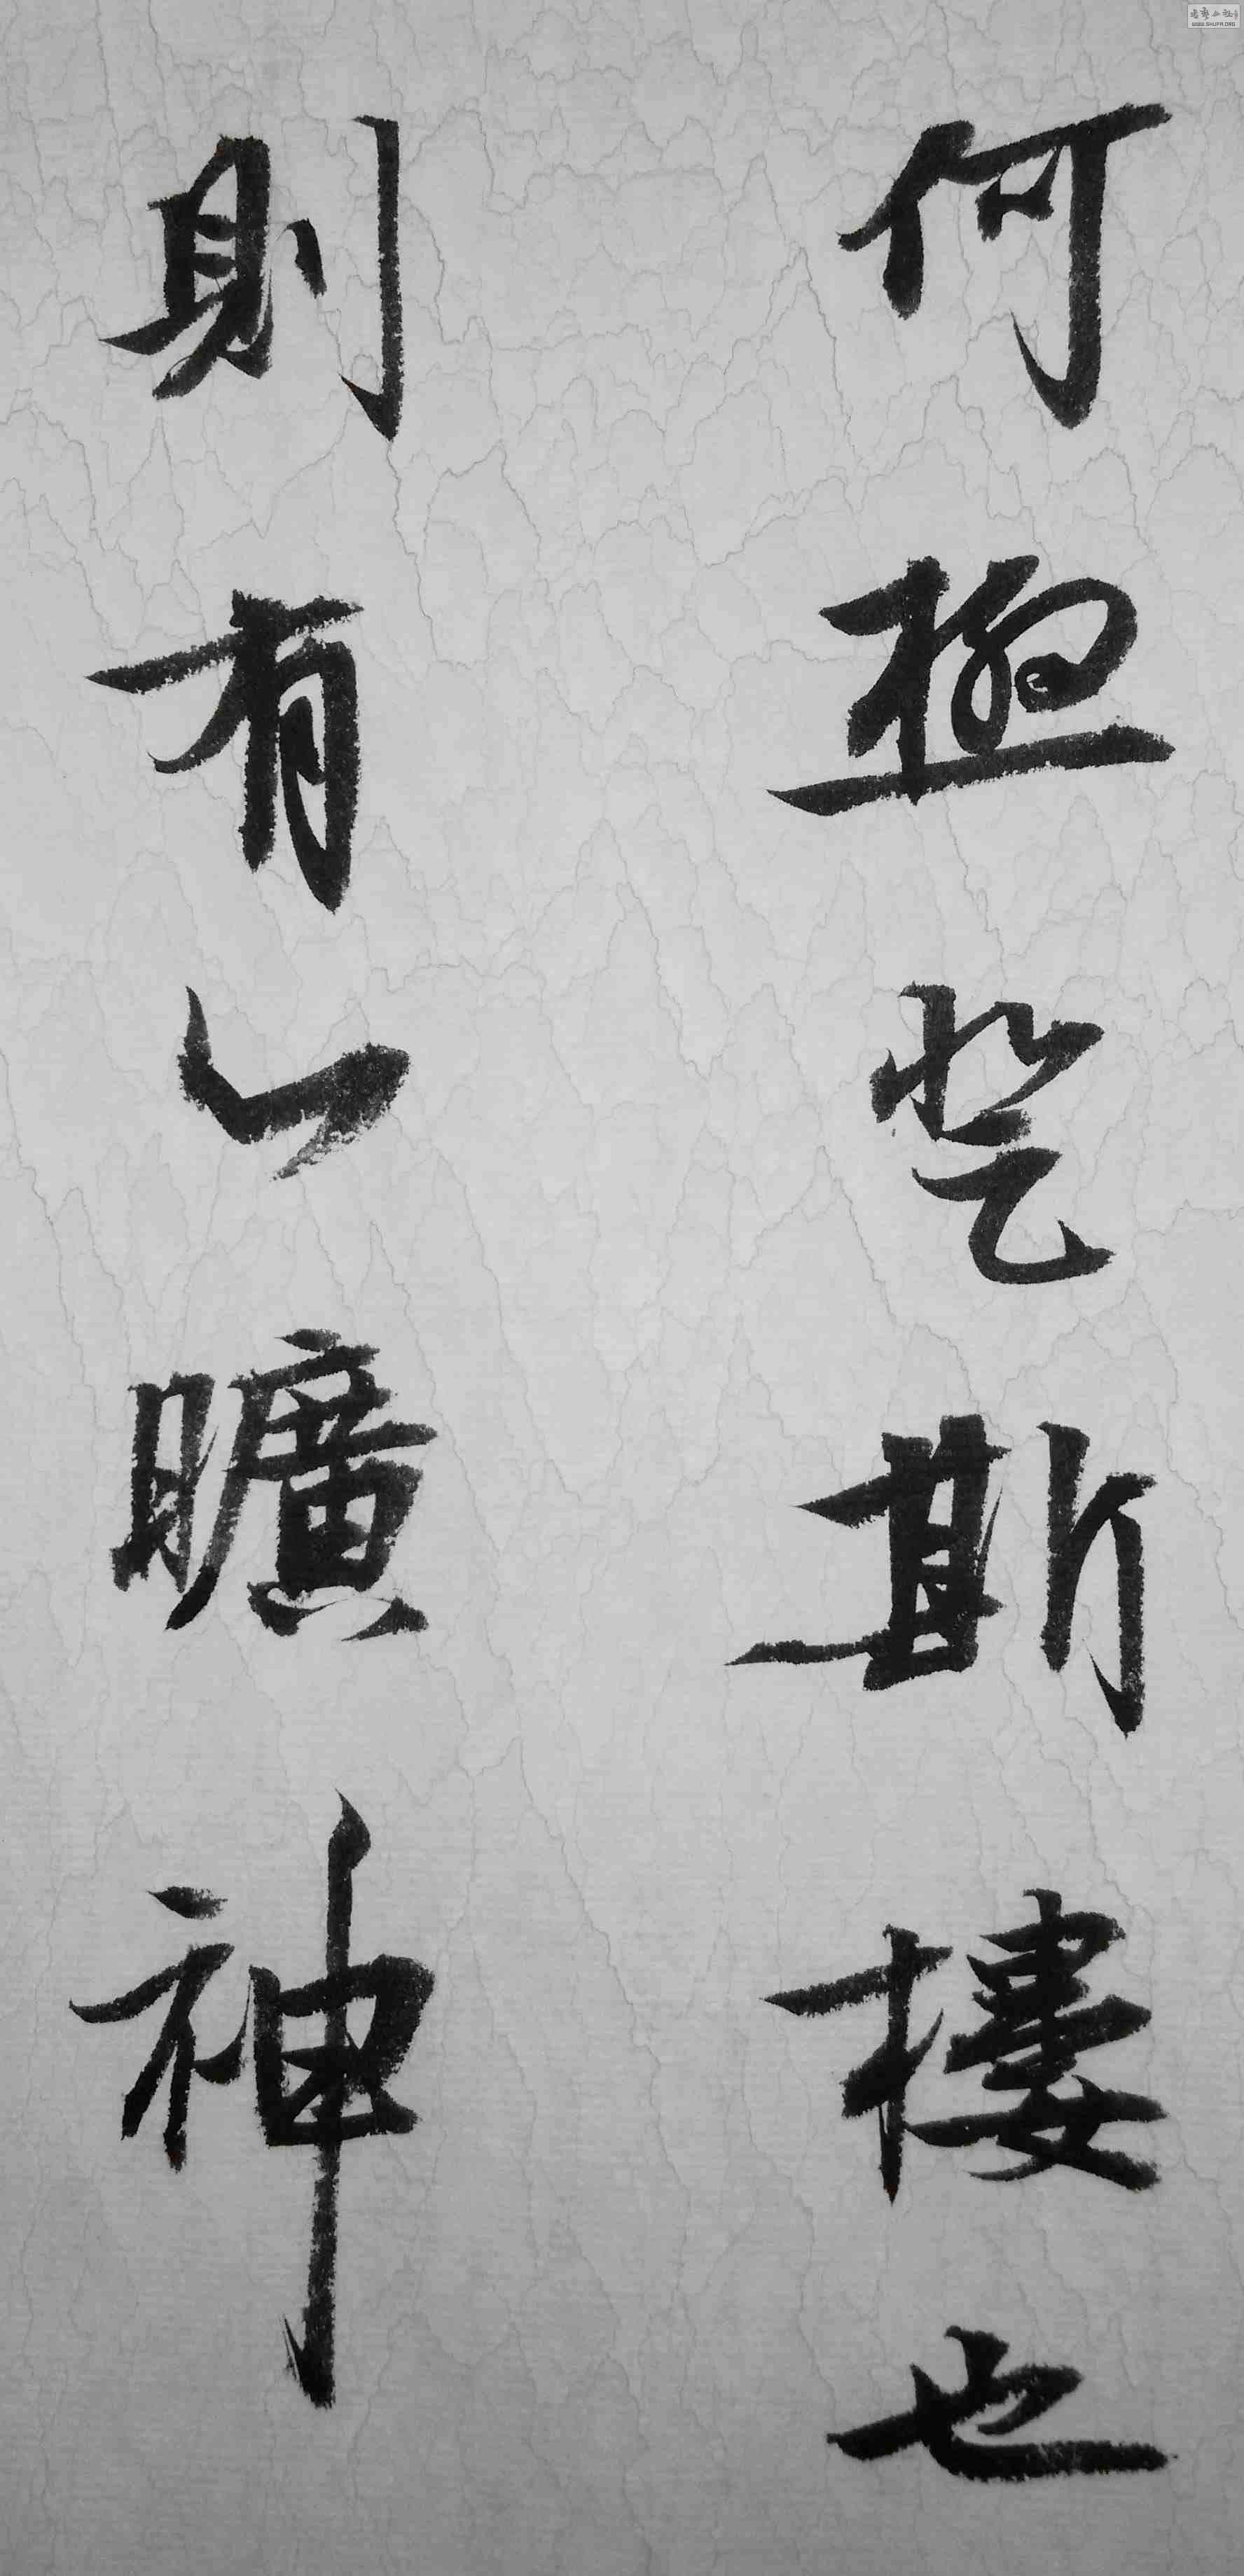 何極登斯樓也
則有心曠神
WWW.SHUFA.ORG